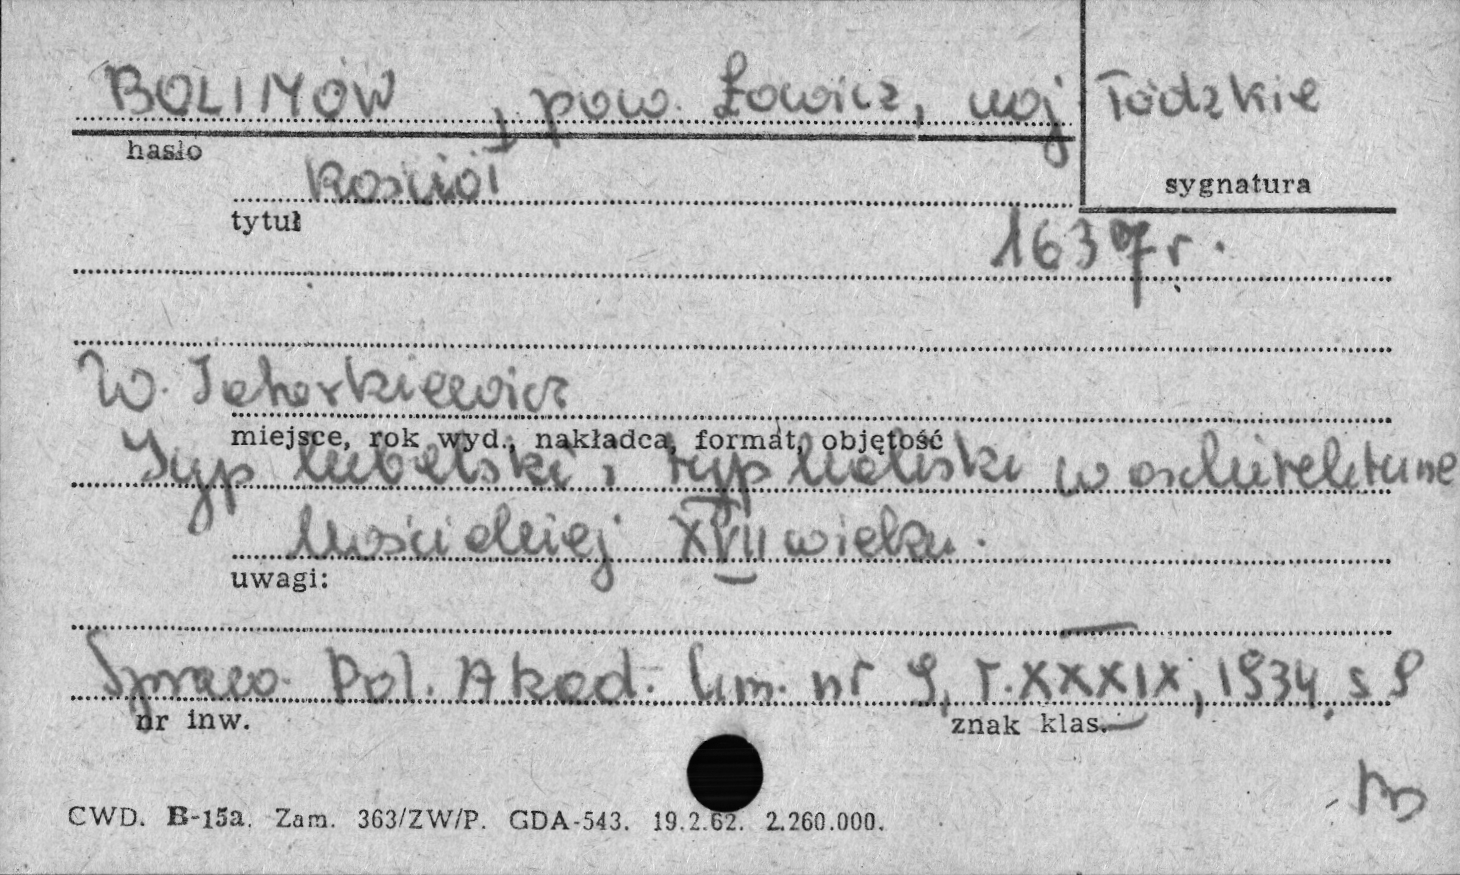 BOLIMÓW, pow. Łowicz, woj Łódzkie
hasło
sygnatura
Kościół
tytuł
1637 r.
W. Tatarkiewicz
miejsce, rok wyd., nakładca, format, objętość
Typ lubelski i typ kaliski w architekturze
kościelnej XVII wieku.
uwagi:
Spraw. Pol. Akad. Um. nr 9, T. XXXIX, 1934, s 9
nr inw.
znak klas.
CWD. B-15a. Zam. 363/ZW/P. GDA-543. 19.2.62. 2.260.000.